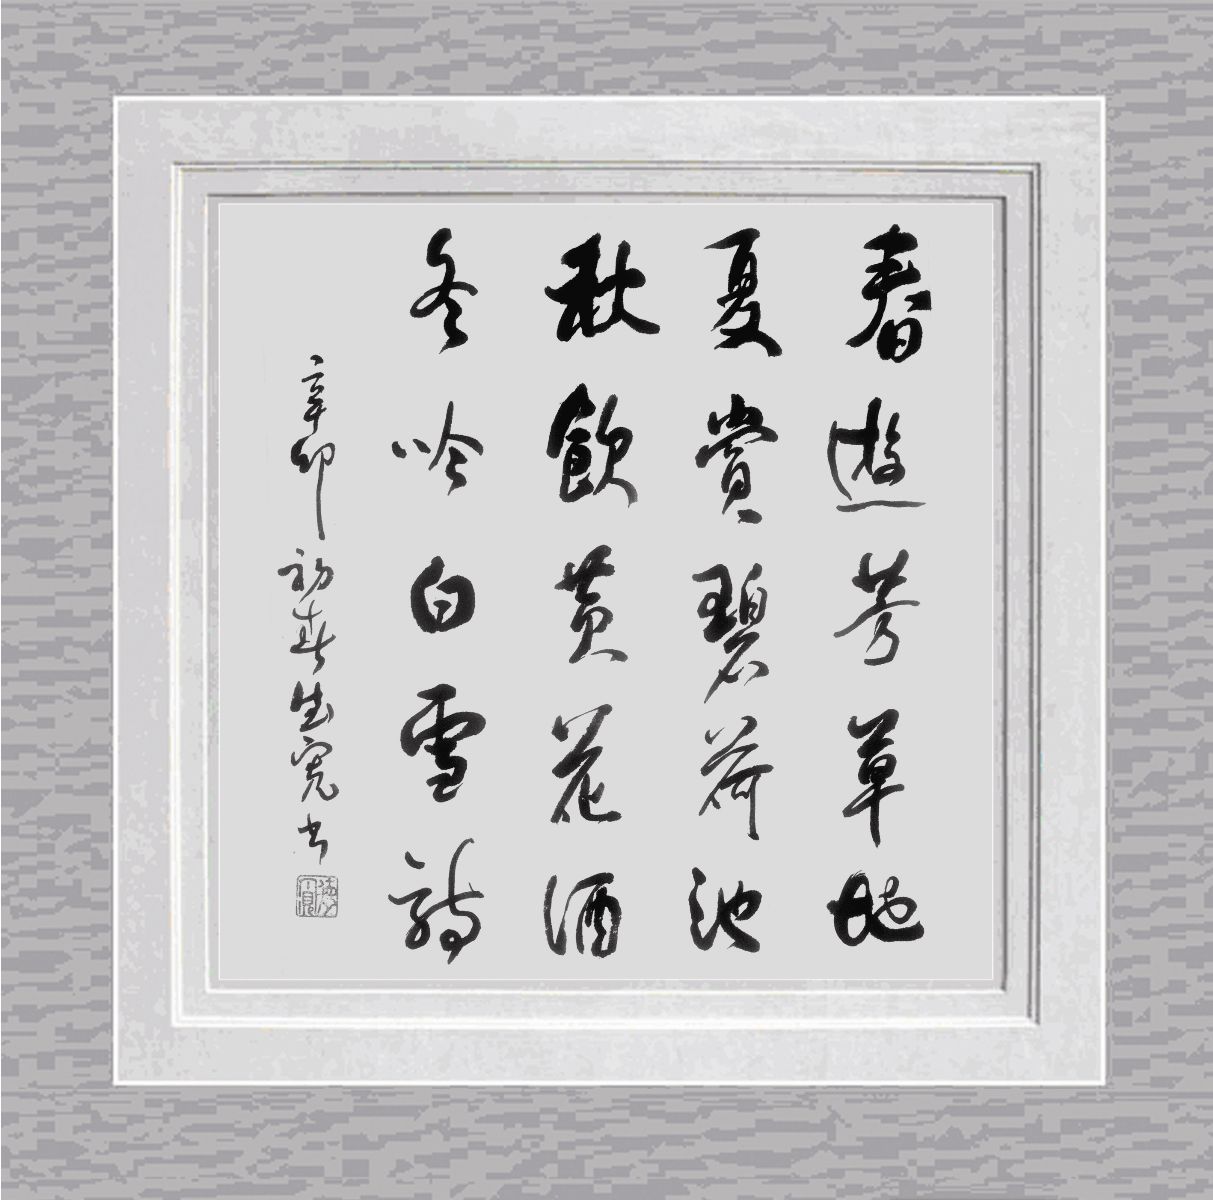 春遊芳草地
夏賞碧荷池
秋飲黄花酒
冬吟白雪詩
辛卯初春生寬书